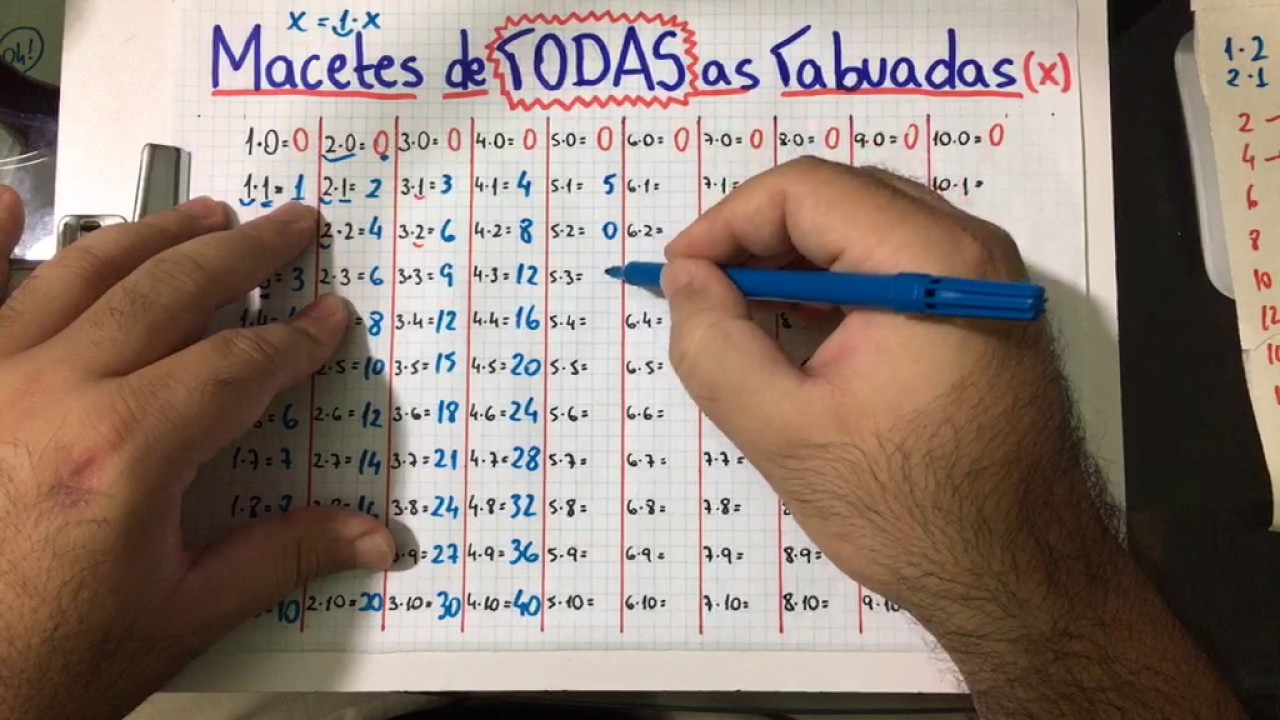 Oh!
x = 1·x
Macetes de TODAS as Tabuadas (x)
1·0=0 2·0=0 3·0=0 4·0=0 5·0=0 6·0=0 7·0=0 8·0=0 9·0=0 10·0=0
1·1=1 2·1=2 3·1=3 4·1=4 5·1= 5 6·1= 7·1= 10·1=
2·2=4 3·2=6 4·2=8 5·2= 0 6·2=
3 2·3=6 3·3=9 4·3=12 5·3=
1·4= =8 3·4=12 4·4=16 5·4= 6·4= 8
2·5=10 3·5=15 4·5=20 5·5= 6·5=
=6 2·6=12 3·6=18 4·6=24 5·6= 6·6=
1·7=7 2·7=14 3·7=21 4·7=28 5·7= 6·7= 7·7=
1·8= 3·8=24 4·8=32 5·8= 6·8= 7·8=
·9=27 4·9=36 5·9= 6·9= 7·9= 8·9=
10 2·10=20 3·10=30 4·10=40 5·10= 6·10= 7·10= 8·10= 9·10
1·2
2·1
2
4
6
8
10
12